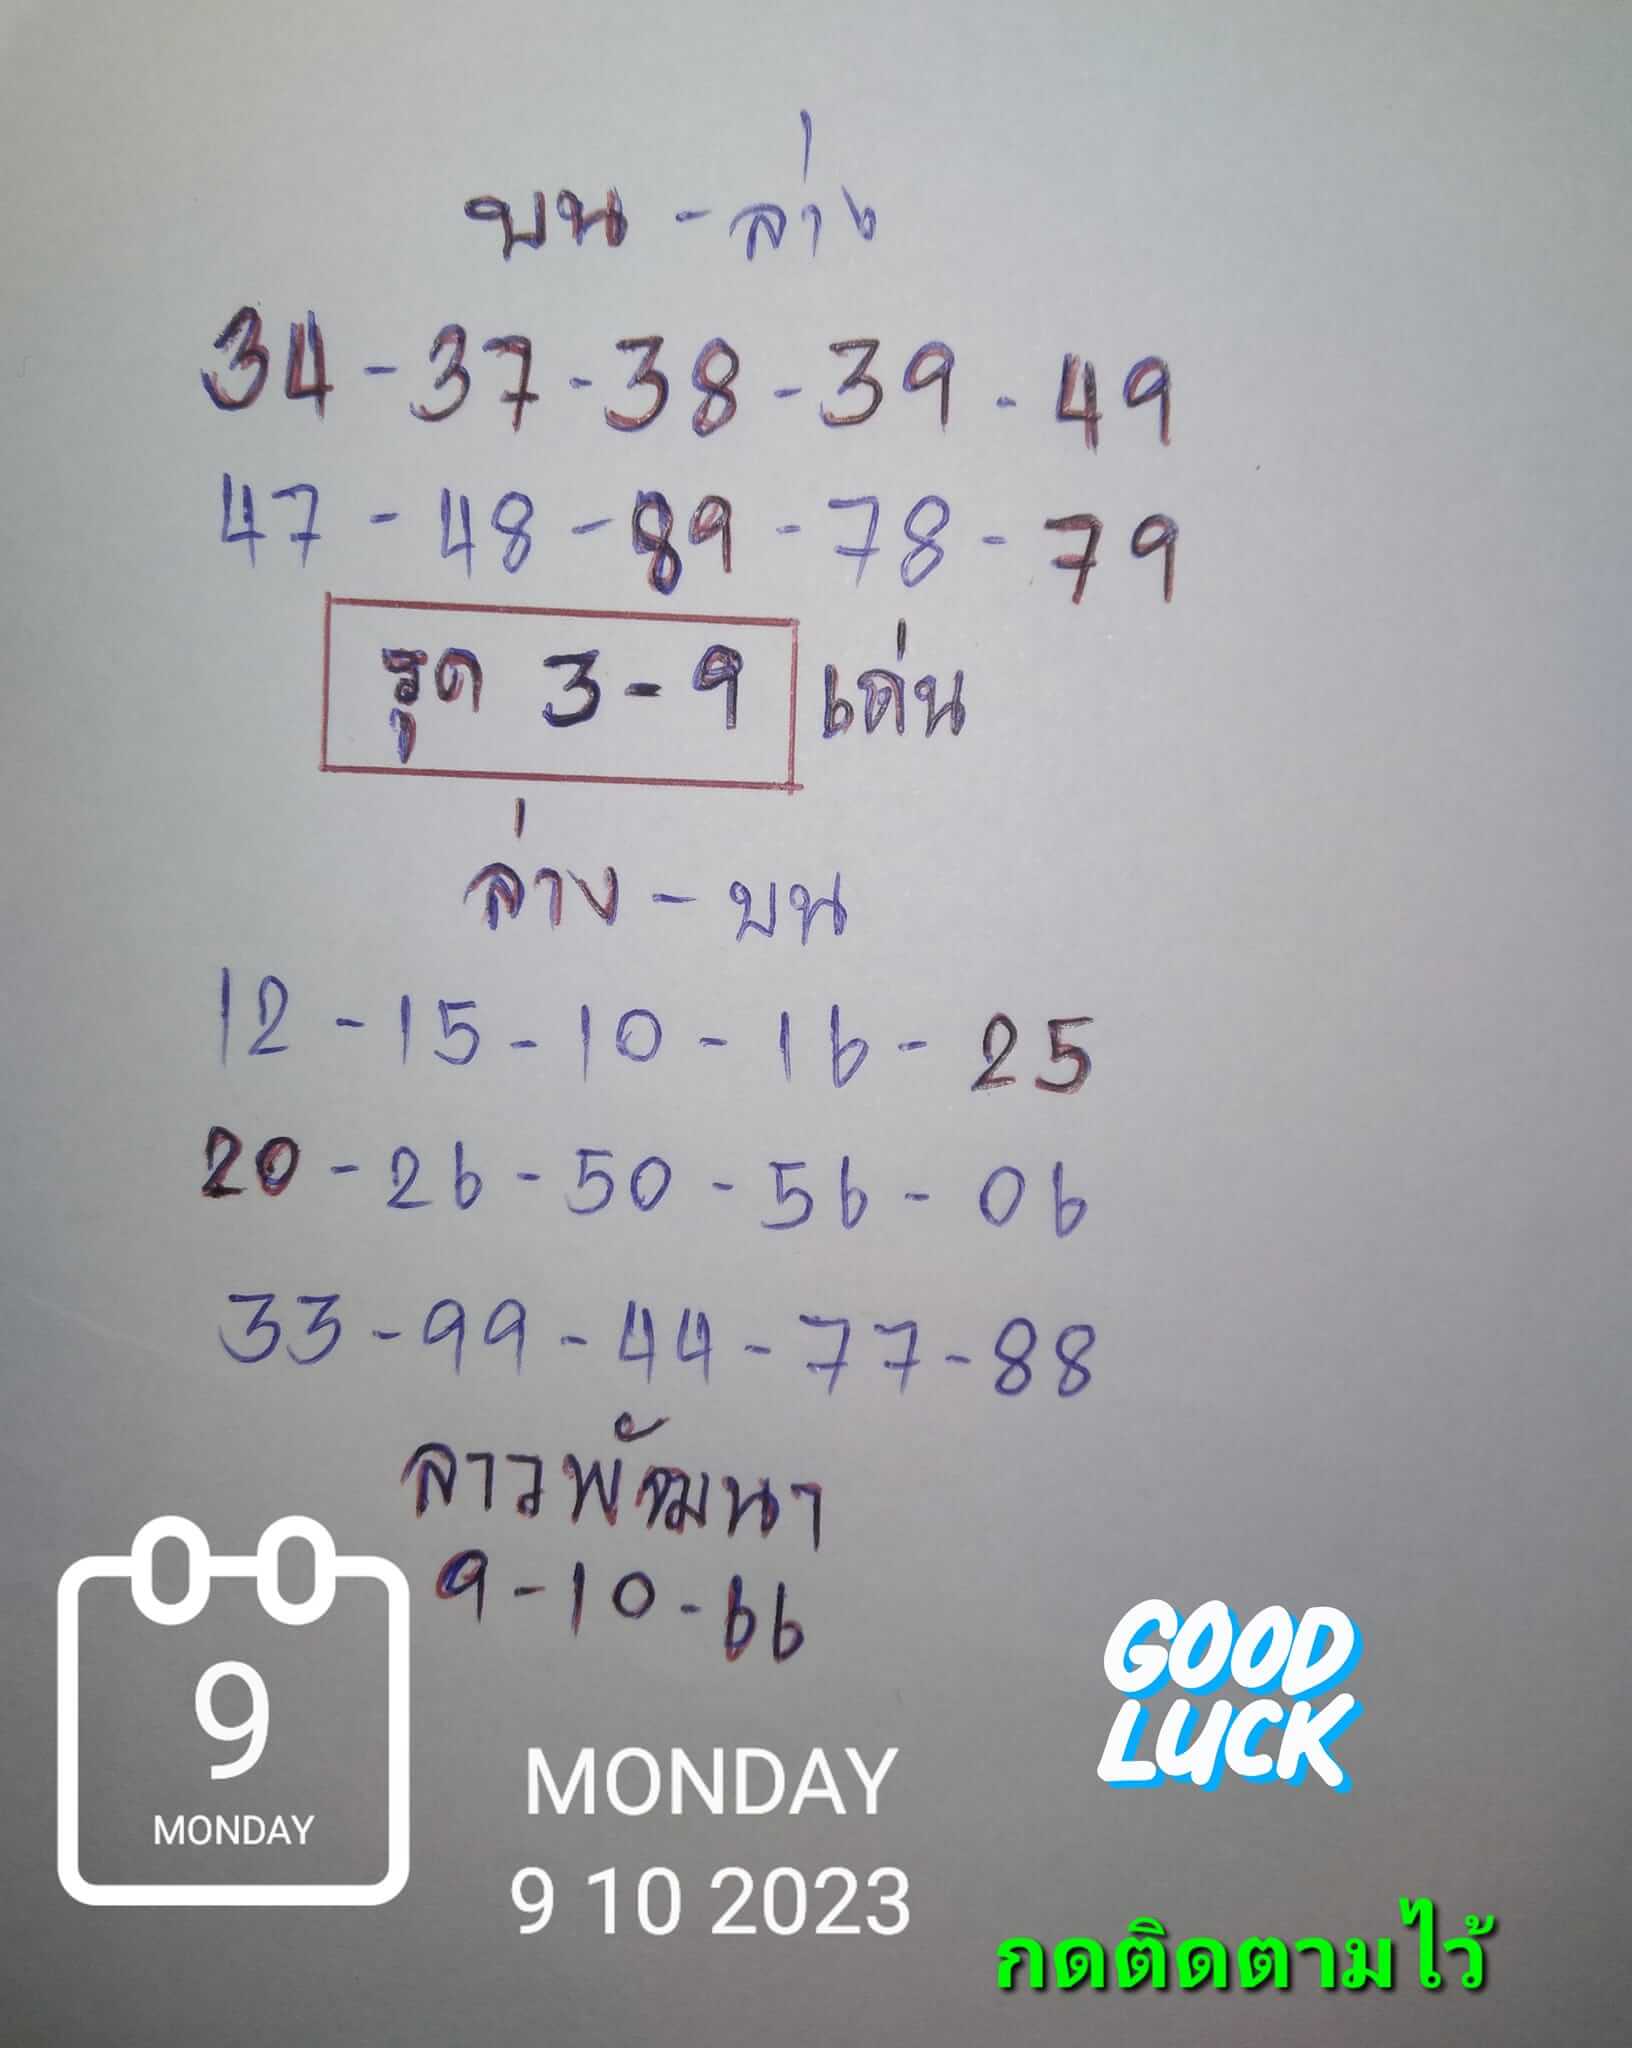 บน - ล่าง
34 - 37 - 38 - 39 - 49
47 - 48 - 89 - 78 - 79
รูด 3 - 9 เด่น
ล่าง - บน
12 - 15 - 10 - 16 - 25
20 - 26 - 50 - 56 - 06
33 - 99 - 44 - 77 - 88
ลาวพัฒนา
9 - 10 - 66
9
MONDAY
MONDAY
9 10 2023
GOOD
LUCK
กดติดตามไว้